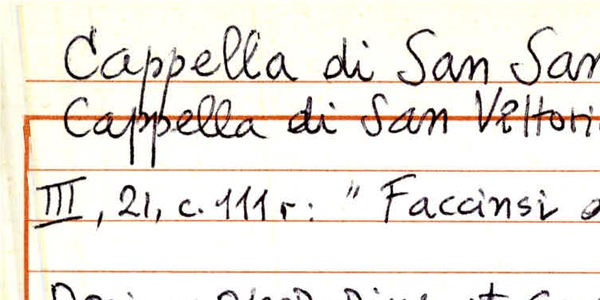 Cappella di San San
Cappella di San Vittori
III, 21, c. 111 r: " Faccinsi